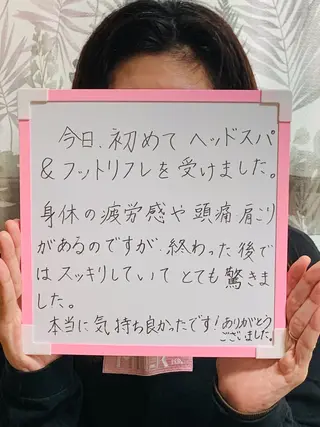 今日、初めて ヘッドスパ
&フットリフレを受けました。
身体の疲労感や頭痛、肩こり
があるのですが、終わった後で
はスッキリしていて とても驚きま
した。
本当に気持ち良かったです!ありがとう
ございました。